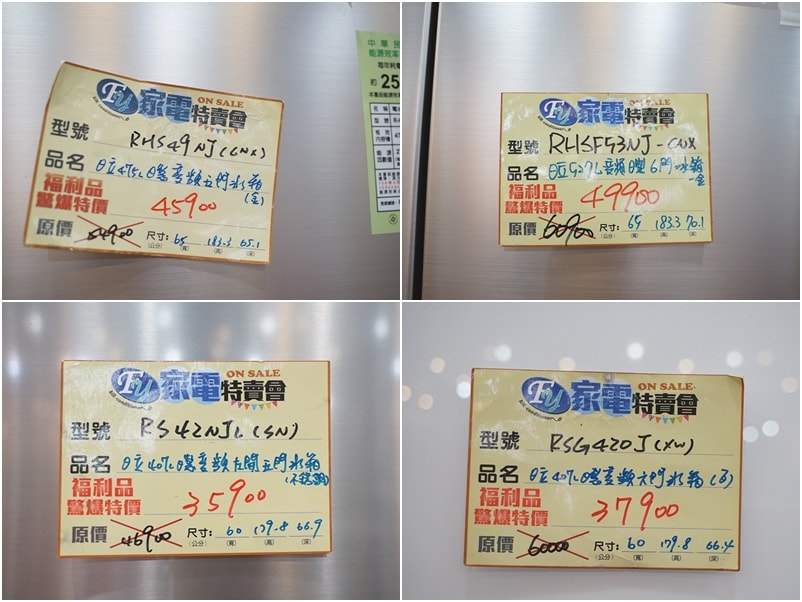 Fu 家電特賣會 ON SALE
型號 RHS49NJ(CNX)
品名 日立475L日製變頻五門冰箱
(金)
福利品
驚爆特價 45900
原價 54900 尺寸: 65 183.3 65.1
(公分) (寬) (高) (深)
中華民
能源效率
約 25
Fu 家電特賣會 ON SALE
型號 RHSF53NJ-CNX
品名 日立527L變頻日製6門冰箱
-金
福利品
驚爆特價 49900
原價 60900 尺寸: 65 183.3 70.1
(公分) (寬) (高) (深)
Fu 家電特賣會 ON SALE
型號 RS42NJL(SN)
品名 日立407L日製變頻左開五門冰箱
(不銹鋼)
福利品
驚爆特價 35900
原價 46900 尺寸: 60 179.8 66.9
(公分) (寬) (高) (深)
Fu 家電特賣會 ON SALE
型號 RSG420J(XW)
品名 日立407L日製變頻六門冰箱(白)
福利品
驚爆特價 37900
原價 60000 尺寸: 60 179.8 66.4
(公分) (寬) (高) (深)